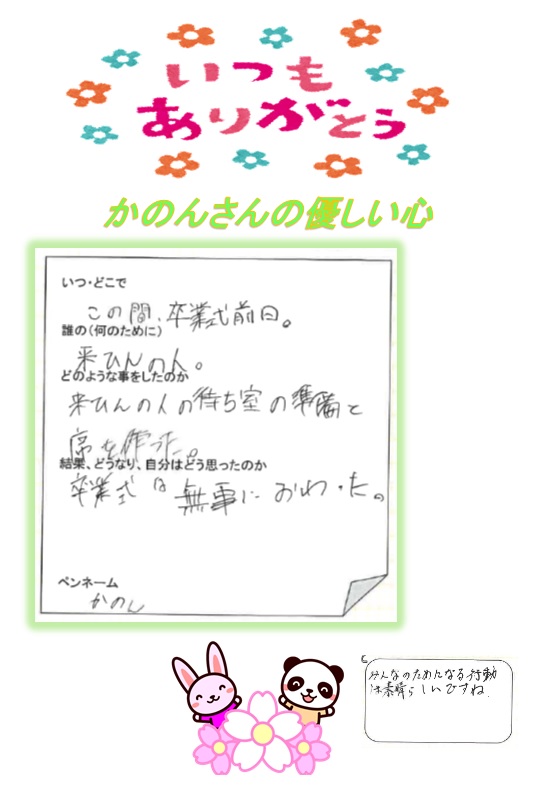 いつも
ありがとう
かのんさんの優しい心
いつ・どこで
この間、卒業式前日。
誰の(何のために)
来ひんの人。
どのような事をしたのか
来ひんの人の待ち室の準備と
席を作った。
結果、どうなり、自分はどう思ったのか
卒業式は無事におわった。
ペンネーム
かのん
みんなのためになる行動
は素晴らしいですね。